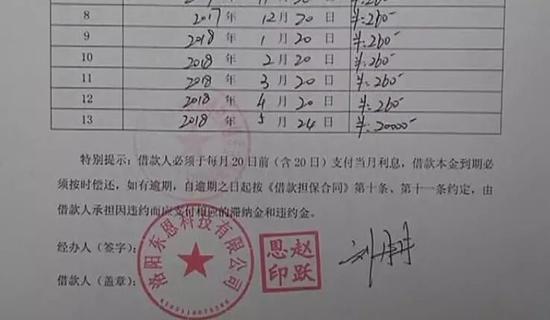 8 2017年12月20日 ¥:260-
9 2018年1月20日 ¥:260-
10 2018年2月20日 ¥:260-
11 2018年3月20日 ¥:260-
12 2018年4月20日 ¥:260-
13 2018年5月24日 ¥:20000-
特别提示：借款人必须于每月20日前（含20日）支付当月利息，借款本金到期必
须按时偿还，如有逾期，自逾期之日起按《借款担保合同》第十条、第十一条约定，由
借款人承担因违约而应支付相应的滞纳金和违约金。
经办人（签字）：
借款人（盖章）：
洛阳东恩科技有限公司
赵跃恩印